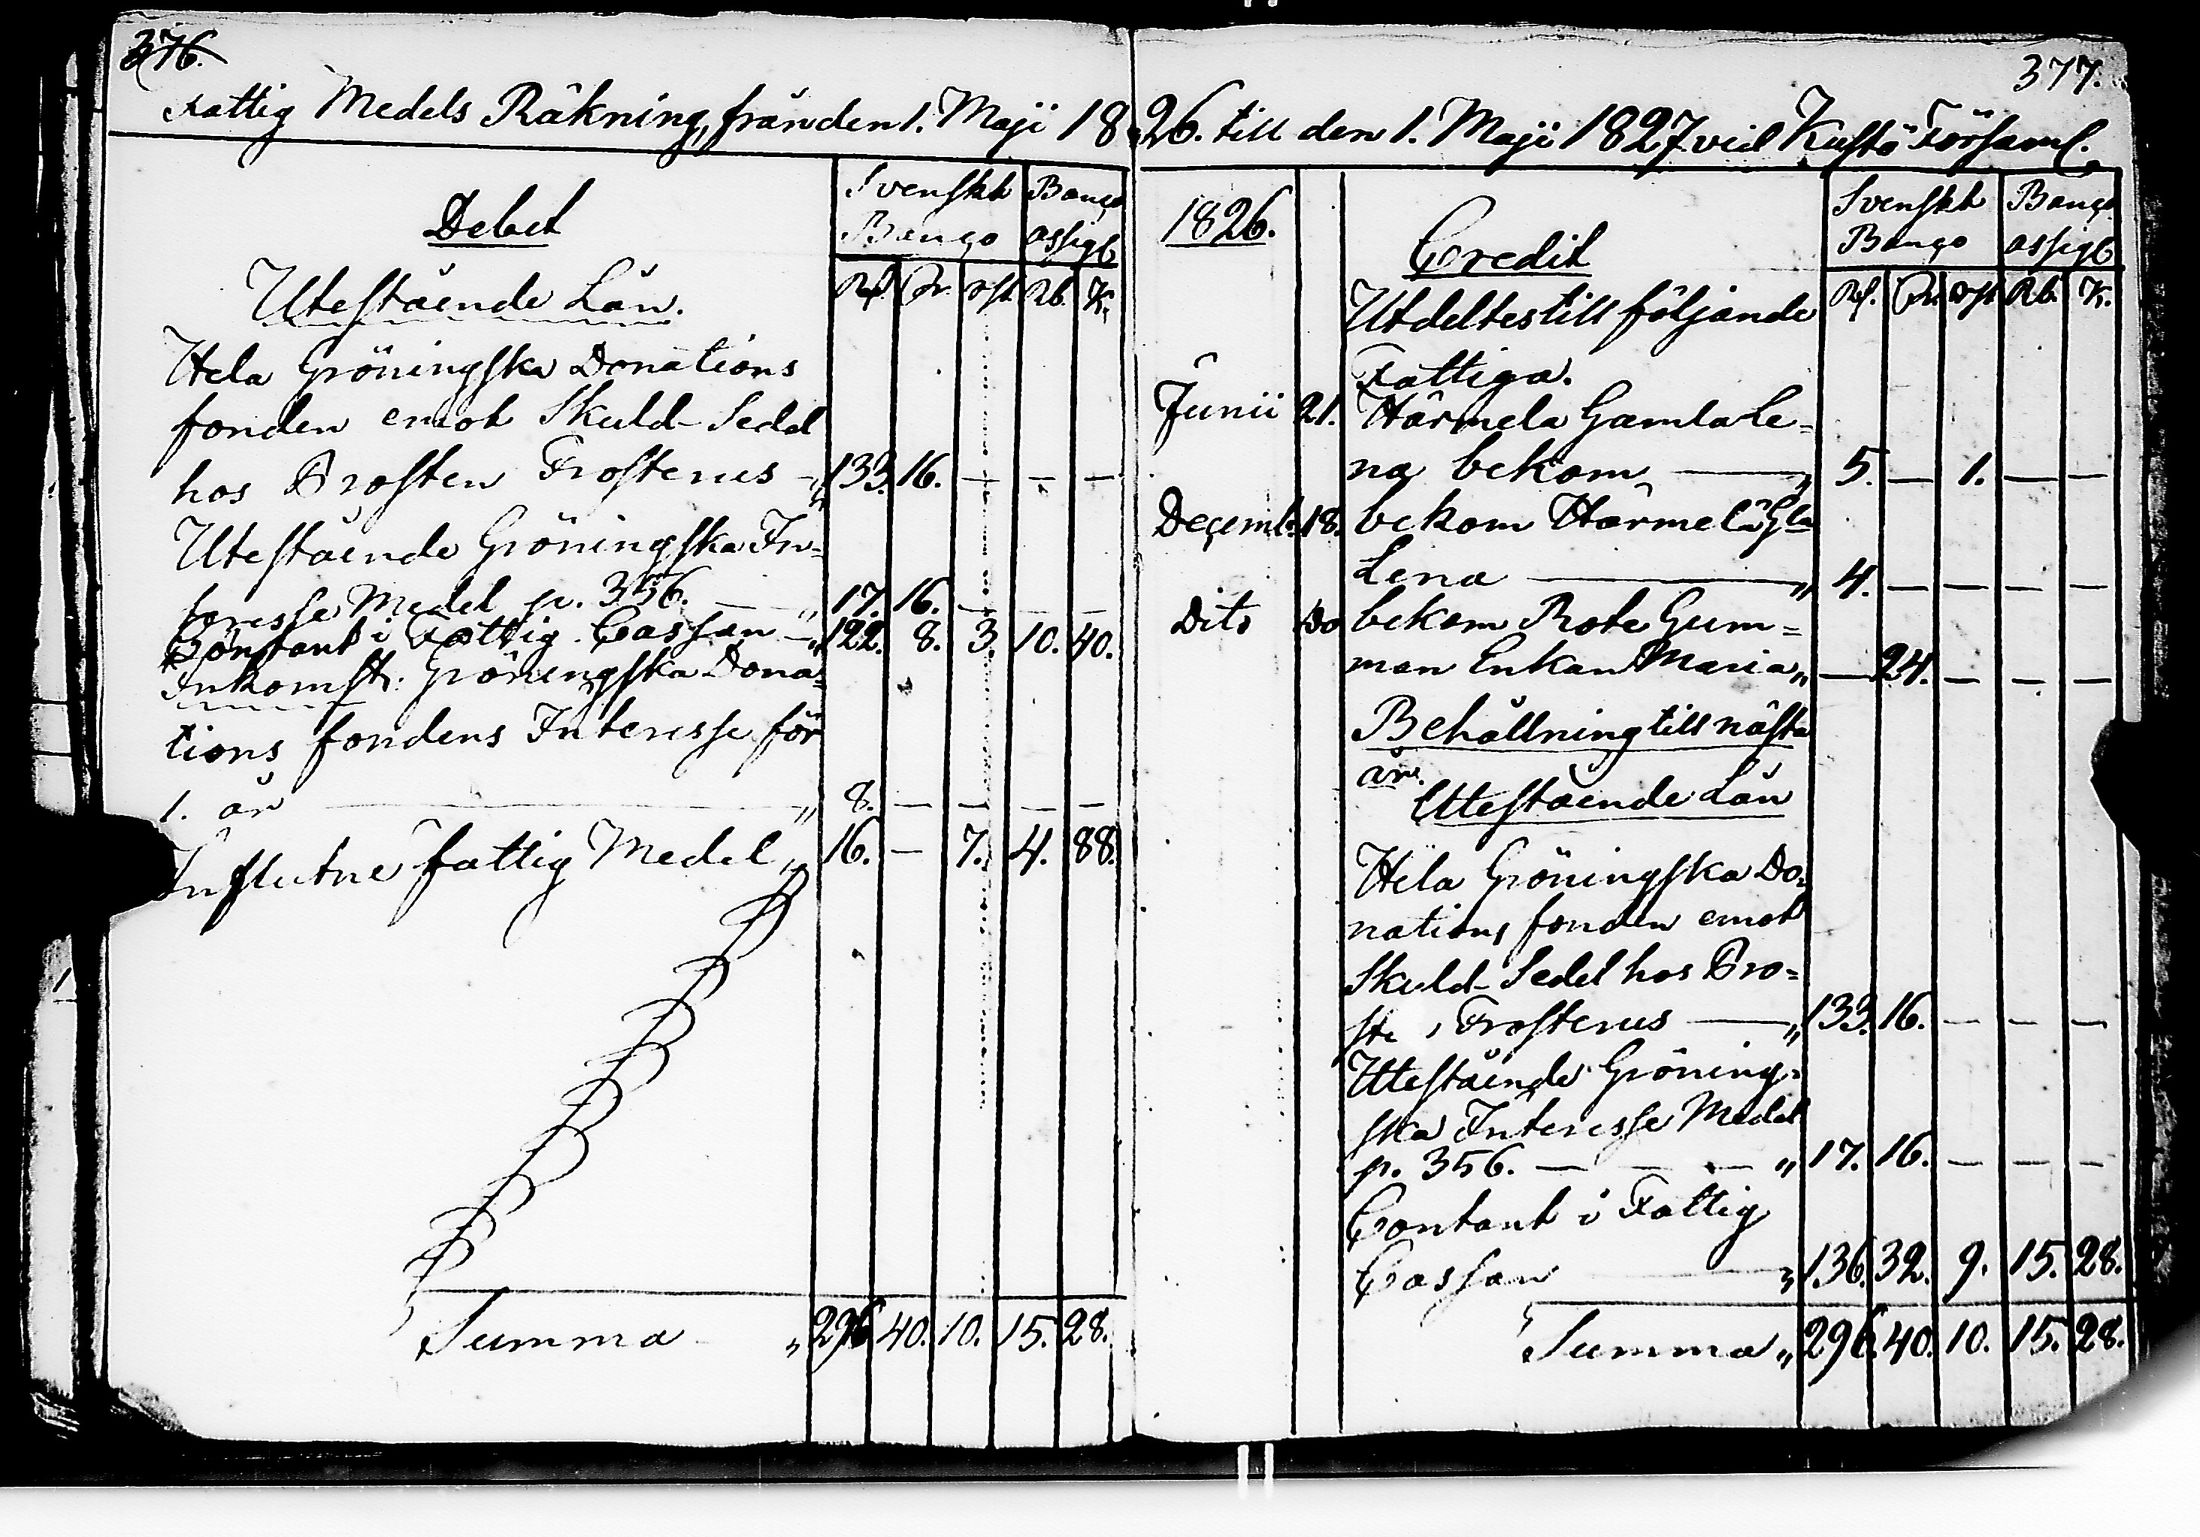 376.
Fattig Medels Räkning, från den 1. Maji 18
Debet
Svenskt Banco
Banco assigt
Rd. Gr. rst. Rb. K.
Utestående Lån.
Hela Gröningska Donations
fonden emot Skuld-Sedel
hos Prosten Frosterus — „ 133. 16. — — —
Utestående Gröningska In-
teresse Medel p. 356. — „ 17. 16. — — —
Contant i Fattig Cassan — „ 122. 8. 3. 10. 40.
Inkomst: Gröningska Dona-
tions fondens Interesse för
1. år — „ 8. — — — —
Influtne fattig Medel „ 16. — 7. 4. 88.
Summa „ 296. 40. 10. 15. 28.
377.
26. till den 1. Maji 1827 vid Församl.
1826.
Credit
Svenskt Banco
Banco assigt
Rd. Gr. rst. Rb. K.
Utdeltes till följande
Fattiga.
Junii 21. Härmela Gamla Le=
na bekom — „ 5. — 1. — —
Decemb. 18. bekom Härmelä Gla
Lena — „ 4. — — — —
Dito Do bekom Rote Gum=
man Enkan Maria „ — 24. — — —
Behållning till nästa
år.
Utestående Lån
Hela Gröningska Do=
nations fonden emot
Skuld-Sedel hos Pro=
ste Frosterus — „ 133. 16. — — —
Utestående Gröning=
ska Interesse Medel
p. 356. — — — „ 17. 16. — — —
Contant i Fattig
Cassan — „ 136. 32. 9. 15. 28.
Summa „ 296. 40. 10. 15. 28.